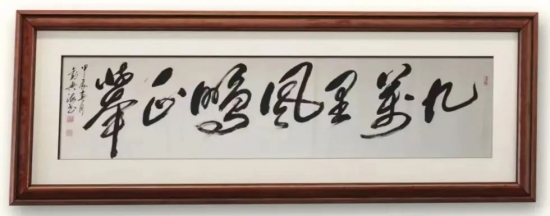 九萬里風鵬正舉
甲辰春月